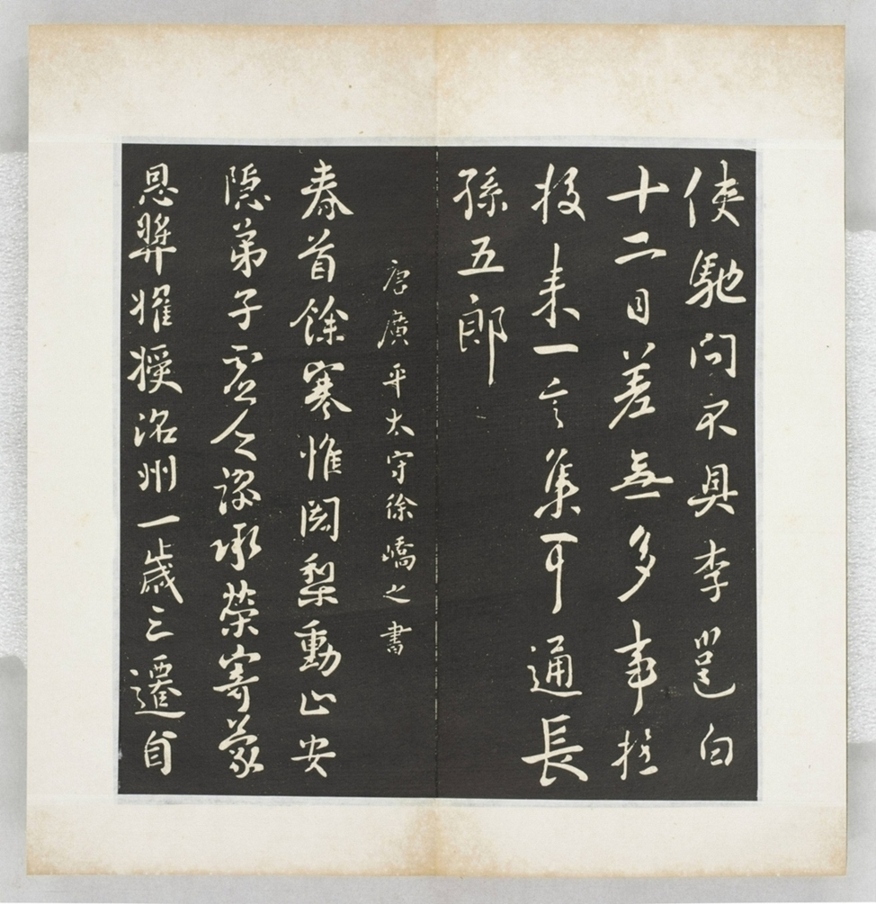 使馳問不具李邕白
十二日差無多事
投来一言集可通長
孫五郎
唐廣平太守徐嶠之書
春首餘寒惟闍梨動止安
隱弟子虚乏謬承榮寄蒙
恩奨擢授洺州一歲三遷自